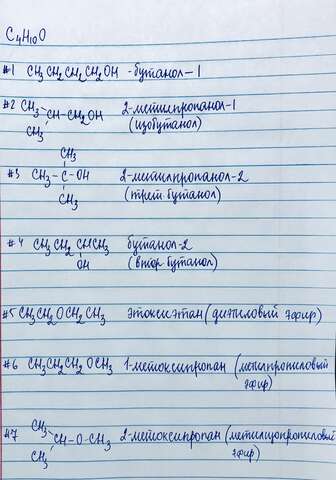 C4H10O
#1 CH3CH2CH2CH2OH - бутанол-1
#2 CH3
CH-CH2OH 2-метилпропанол-1
CH3 (изобутанол)
CH3
#3 CH3-C-OH 2-метилпропанол-2
CH3 (трет.бутанол)
#4 CH3CH2CHCH3 бутанол-2
OH (втор.бутанол)
#5 CH3CH2OCH2CH3 этоксиэтан (диэтиловый эфир)
#6 CH3CH2CH2OCH3 1-метоксипропан (метилпропиловый
эфир)
#7 CH3
CH-O-CH3 2-метоксипропан (метилизопропиловый
CH3 эфир)